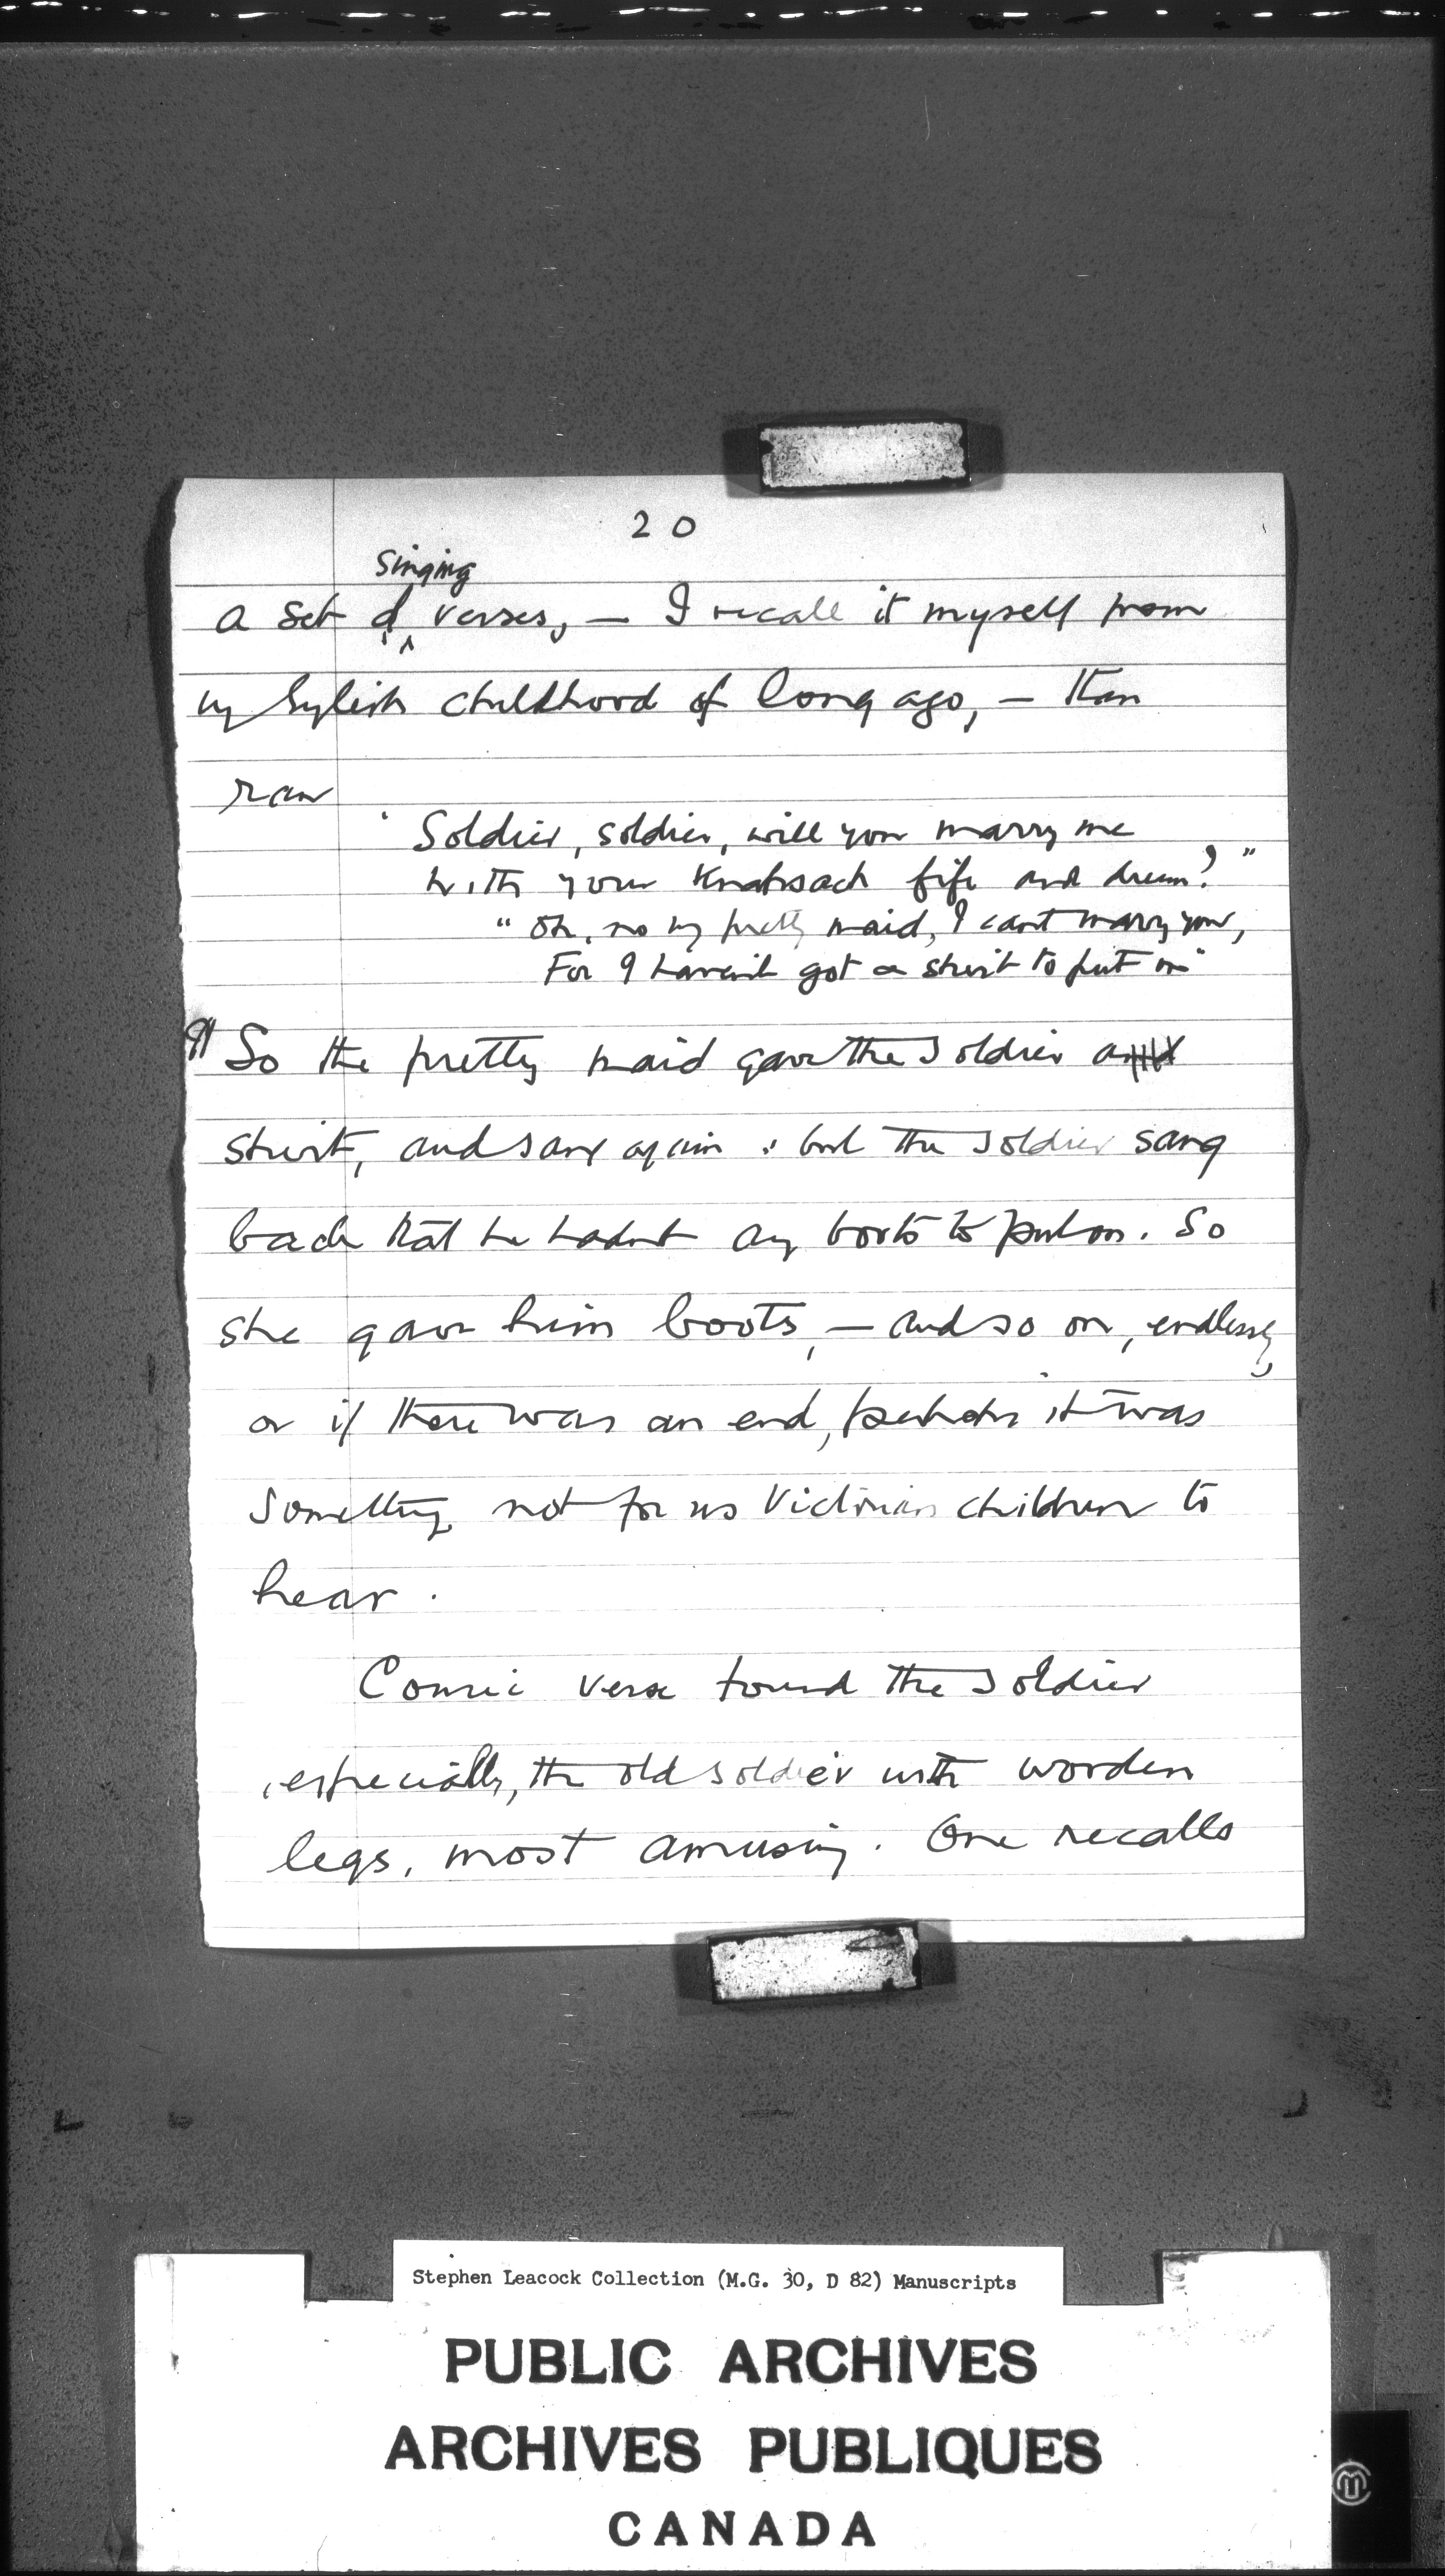 20
singing
a set of verses, — I recall it myself from
my English childhood of long ago, — than
ran
"Soldier, soldier, will you marry me
with your Knapsack fife and drum?"
"Oh, no my pretty maid, I cant marry you,
For I haven't got a shirt to put on"
¶ So the pretty maid gave the soldier a
shirt, and sang again : but the soldier sang
back that he hadnt any boots to put on. So
she gave him boots, — and so on, endlessly,
or if there was an end, perhaps it was
something not for us Victorian children to
hear.
Comic verse found the soldier
, especially, the old soldier with wooden
legs, most amusing. One recalls
Stephen Leacock Collection (M.G. 30, D 82) Manuscripts
PUBLIC ARCHIVES
ARCHIVES PUBLIQUES
CANADA